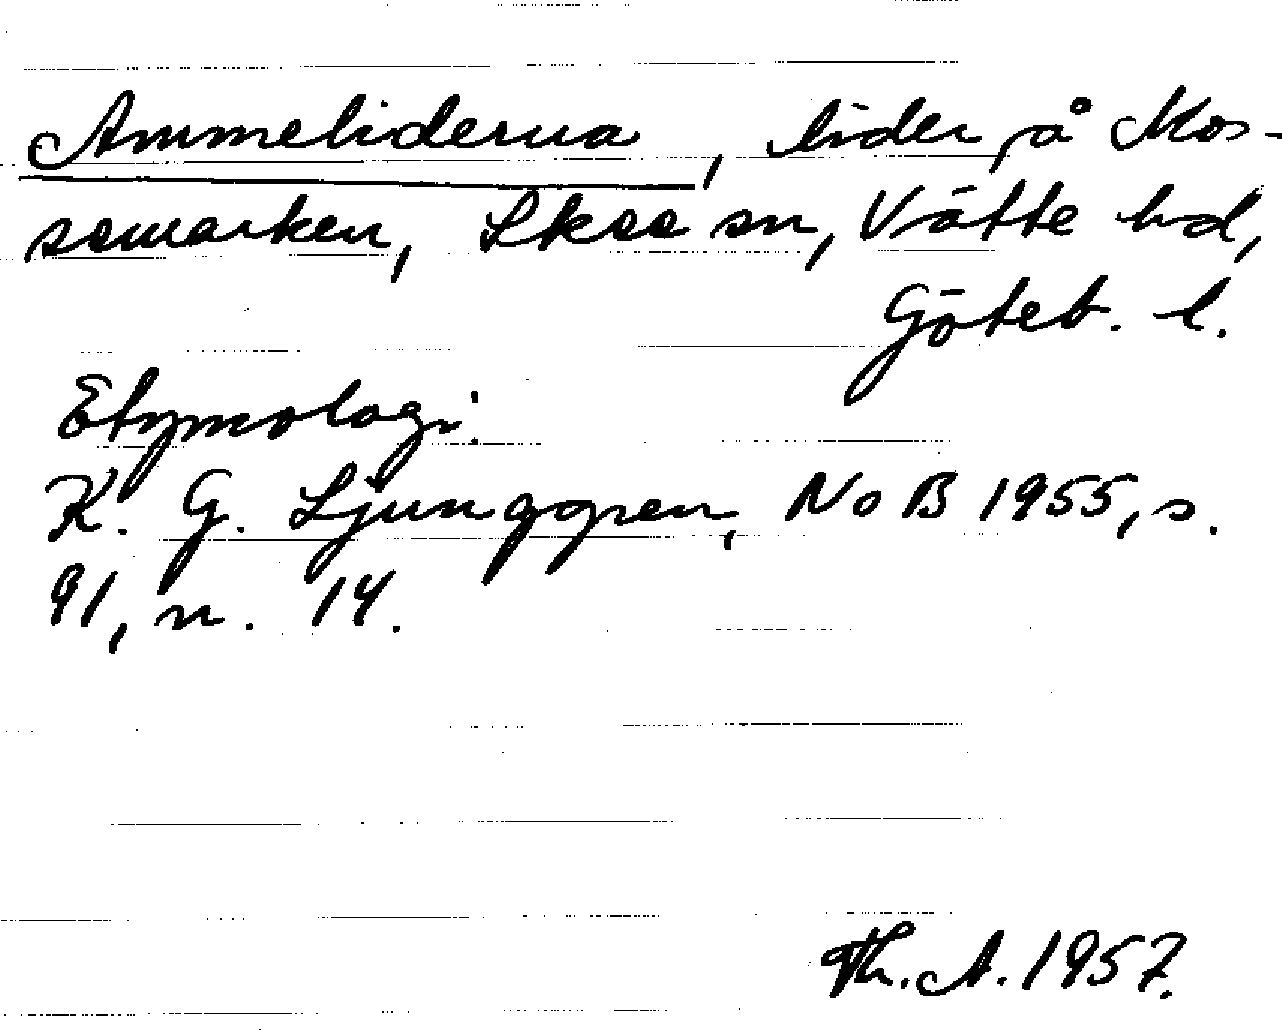 Ammeliderna, lider på Mos-
semarken, Skee sn, Vätte hd,
Göteb. l.
Etymologi:
K. G. Ljunggren, NoB 1955, s.
91, n. 14.
Th. A. 1957.